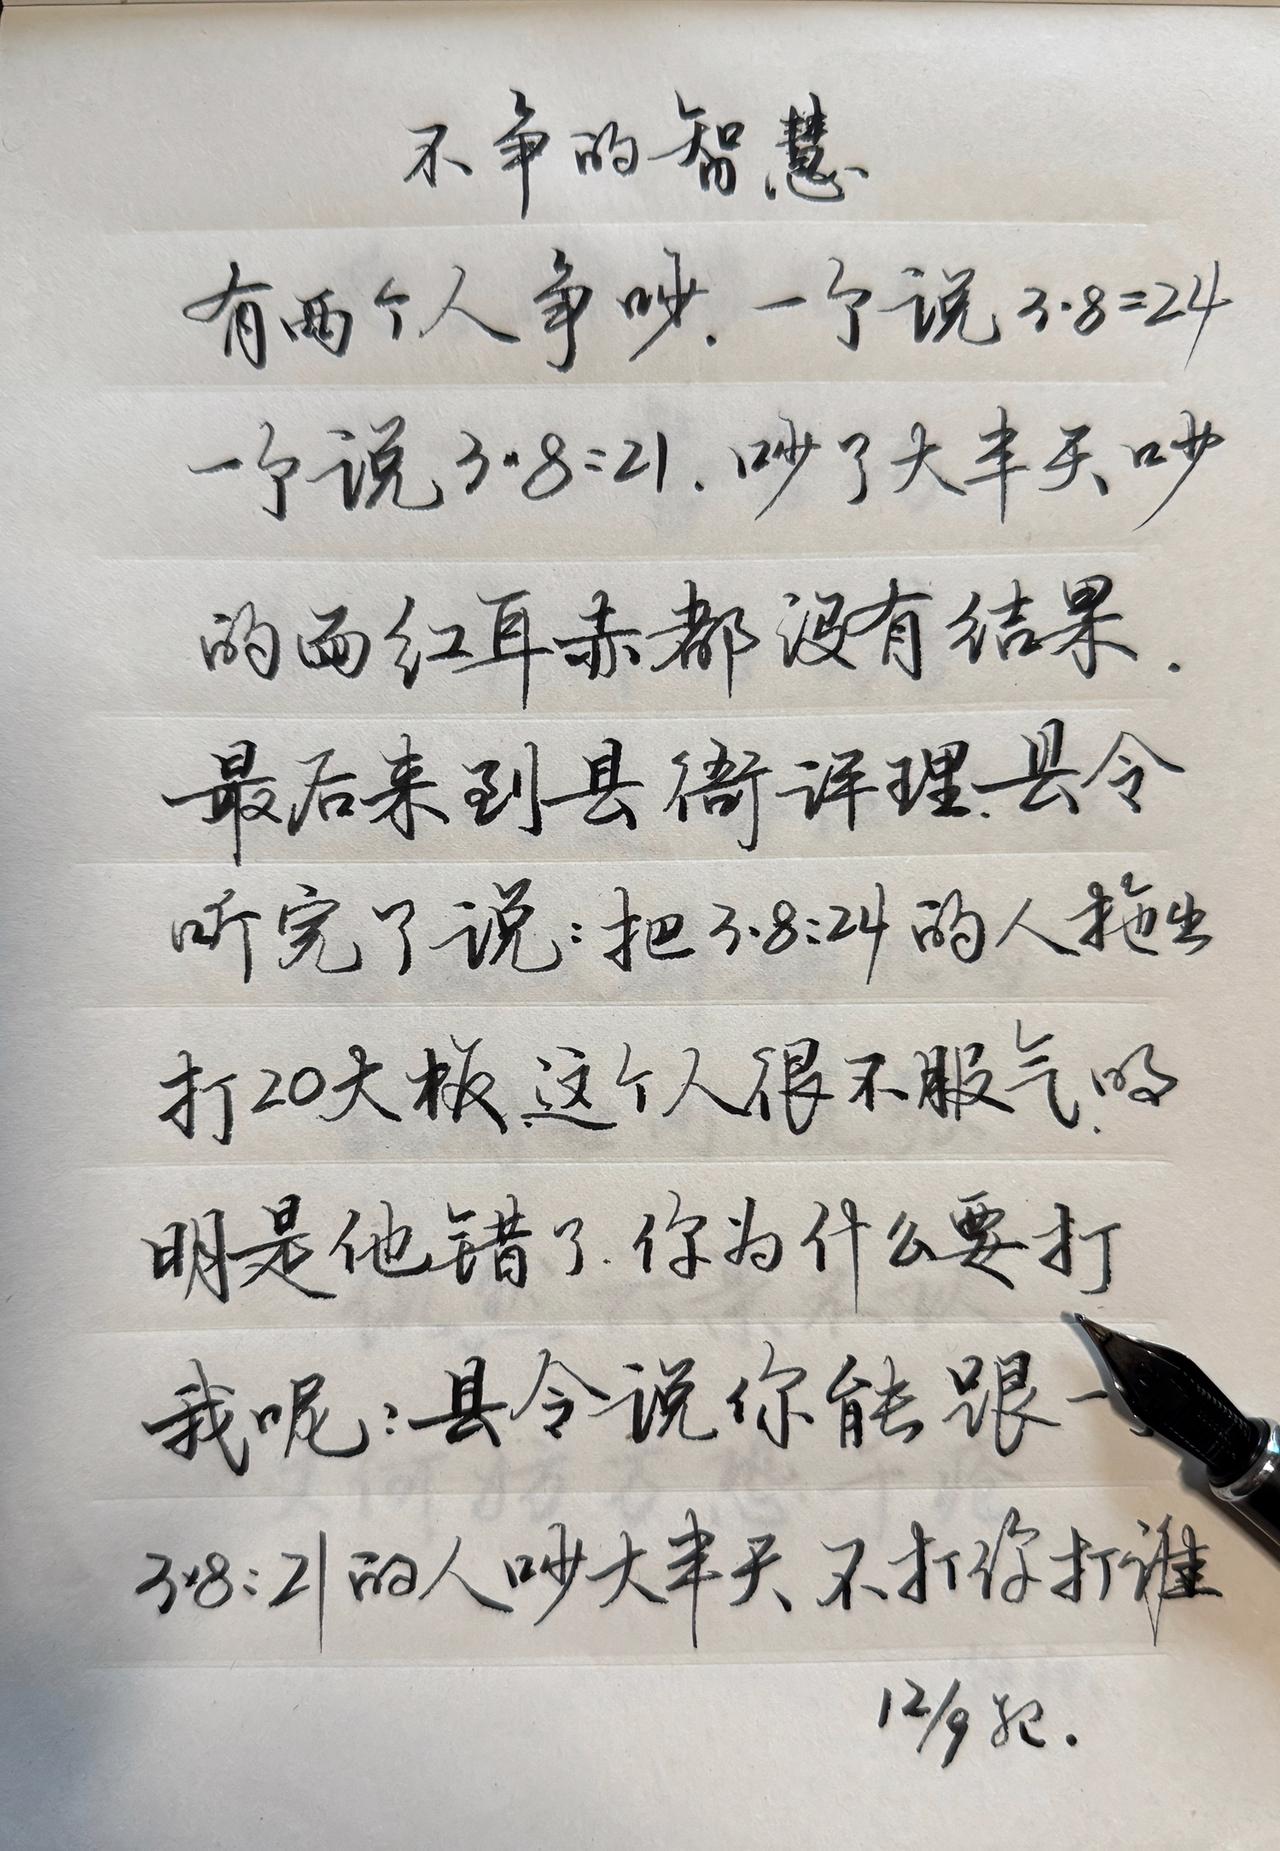 不争的智慧
有两个人争吵.一个说3·8=24
一个说3·8=21.吵了大半天吵
的面红耳赤都没有结果.
最后来到县衙评理.县令
听完了说:把3·8:24的人拖出
打20大板.这个人很不服气.明
明是他错了.你为什么要打
我呢:县令说你能跟一
3·8:21的人吵大半天不打你打谁
12/9记.